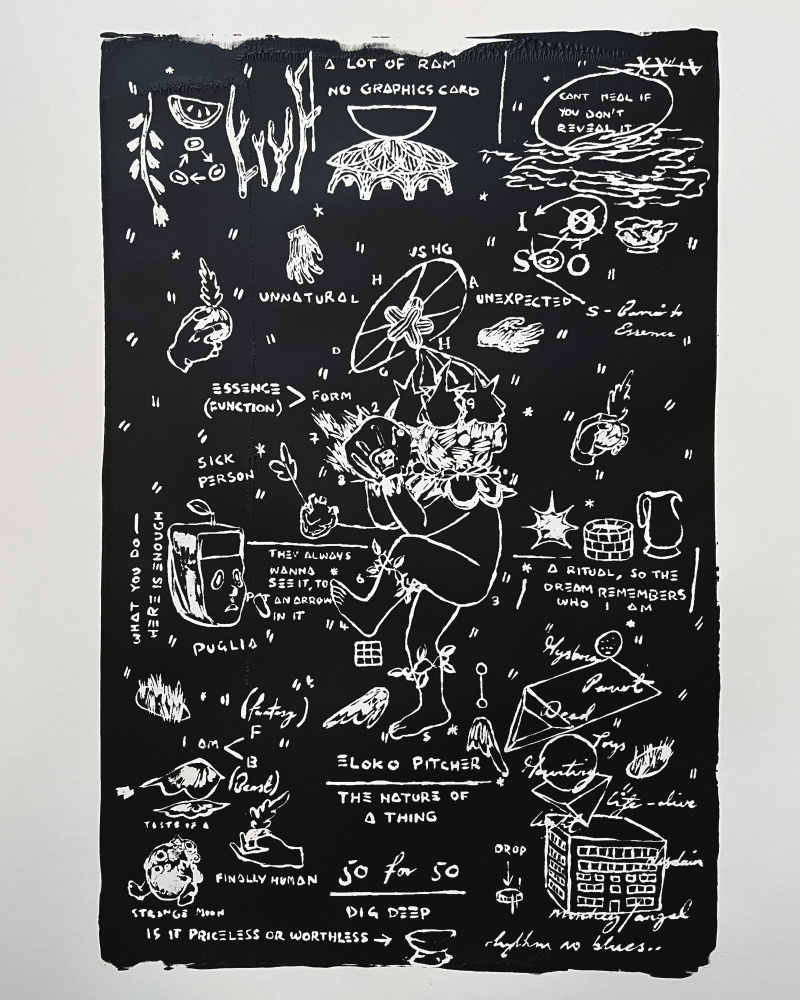 A LOT OF RAM
NO GRAPHICS CARD
XXIV
CANT HEAL IF
YOU DON'T
REVEAL IT
I
S O O
VS HG
H
A
UNNATURAL
UNEXPECTED
S-
Essence
H
D
G
ESSENCE
(FUNCTION) > FORM
2
9
7
8
SICK
PERSON
WHAT YOU DO —
HERE IS ENOUGH
THEY ALWAYS
WANNA
SEE IT, TO
AN ARROW
IN IT
6
4
3
5
PUGLIA
A RITUAL, SO THE
DREAM REMEMBERS
WHO I AM
Parrot
Dead
Toys
Haunting
(fantasy)
F
I AM <
B
(Beast)
ELOKO PITCHER
THE NATURE OF
A THING
TASTE OF A
FINALLY HUMAN
50 for 50
DIG DEEP
DROP
STRANGE MOON
monkey/angel
IS IT PRICELESS OR WORTHLESS →
rhythm no blues..